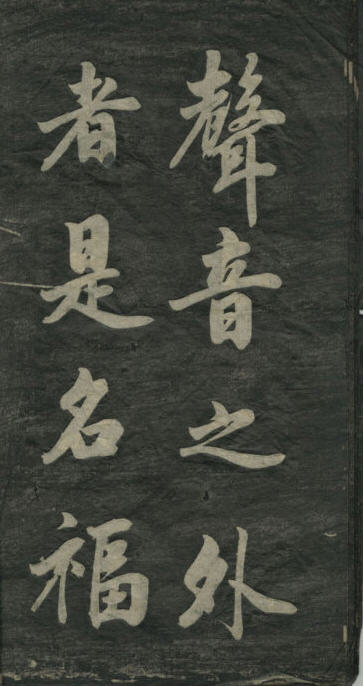 聲音之外
者是名福